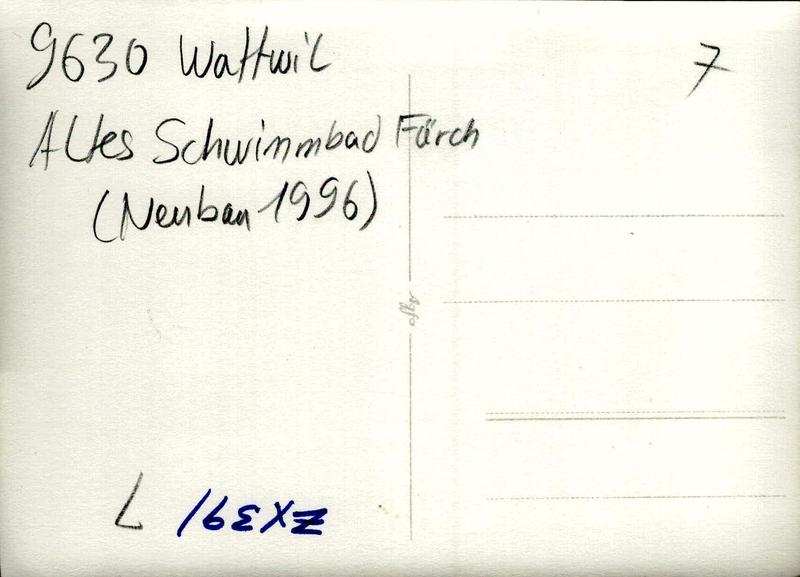 9630 Wattwil
7
Altes Schwimmbad Färch
(Neubau 1996)
7
ZX391